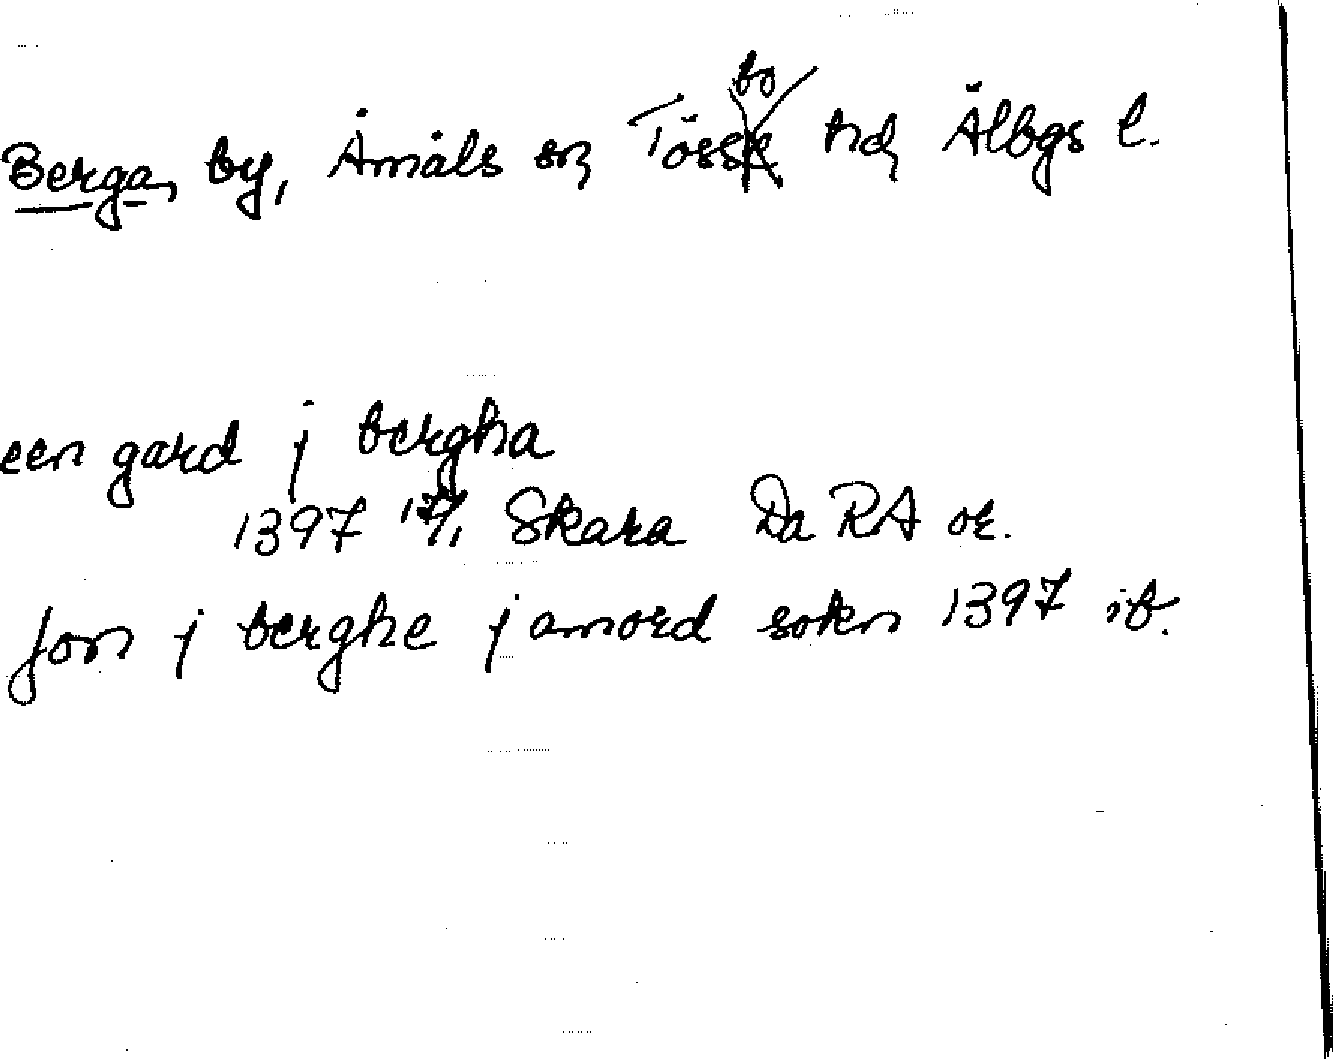 Berga, by, Åmåls sn Tössbo hd Älbgs l.
een gard j bergha
1397 12/1 Skara Da RA or.
Jon j berghe j amord sokn 1397 ib.